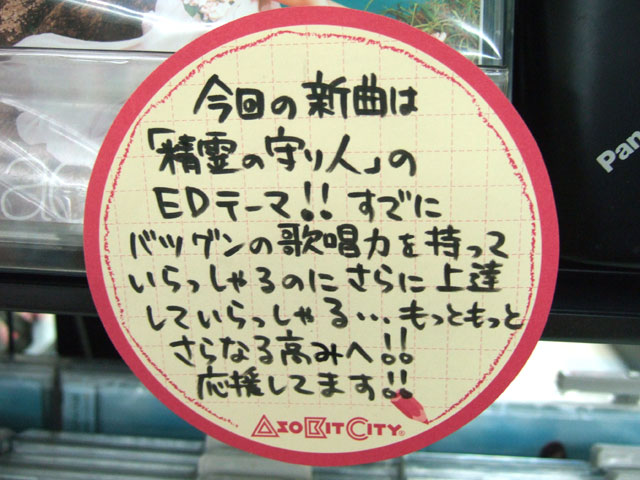 今回の新曲は
「精霊の守り人」の
EDテーマ!! すでに
バツグンの歌唱力を持って
いらっしゃるのにさらに上達
していらっしゃる…もっともっと
さらなる高みへ!!
応援してます!!
ASOBITCITY®
Pan